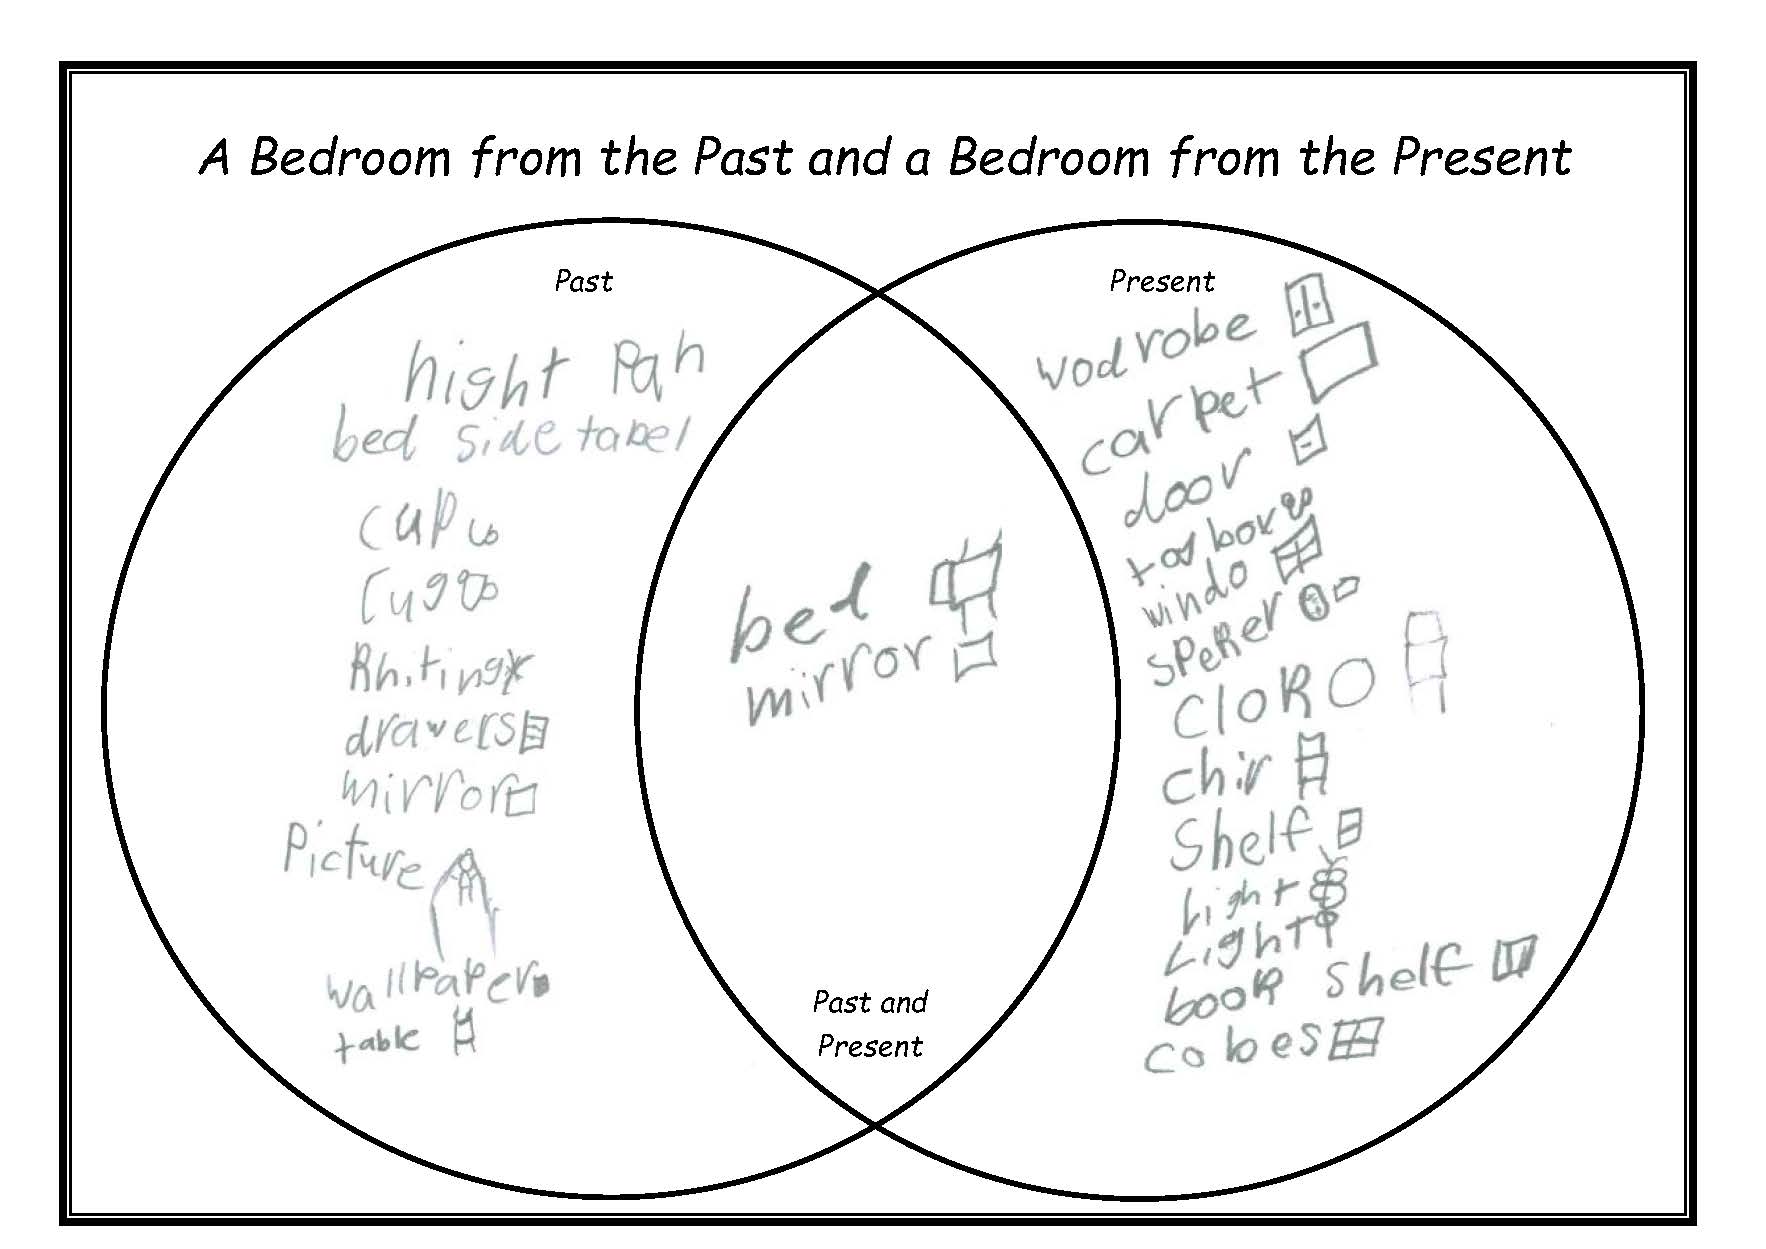 A Bedroom from the Past and a Bedroom from the Present
Past
hight Pah
bed side tabel
cup
Rhiting
drawers
mirror
Picture
wallpaper
table
bed
mirror
Past and
Present
Present
wodrobe
carpet
door
box
windo
speker
clok
chir
Shelf
Light
Light
book shelf
cobes